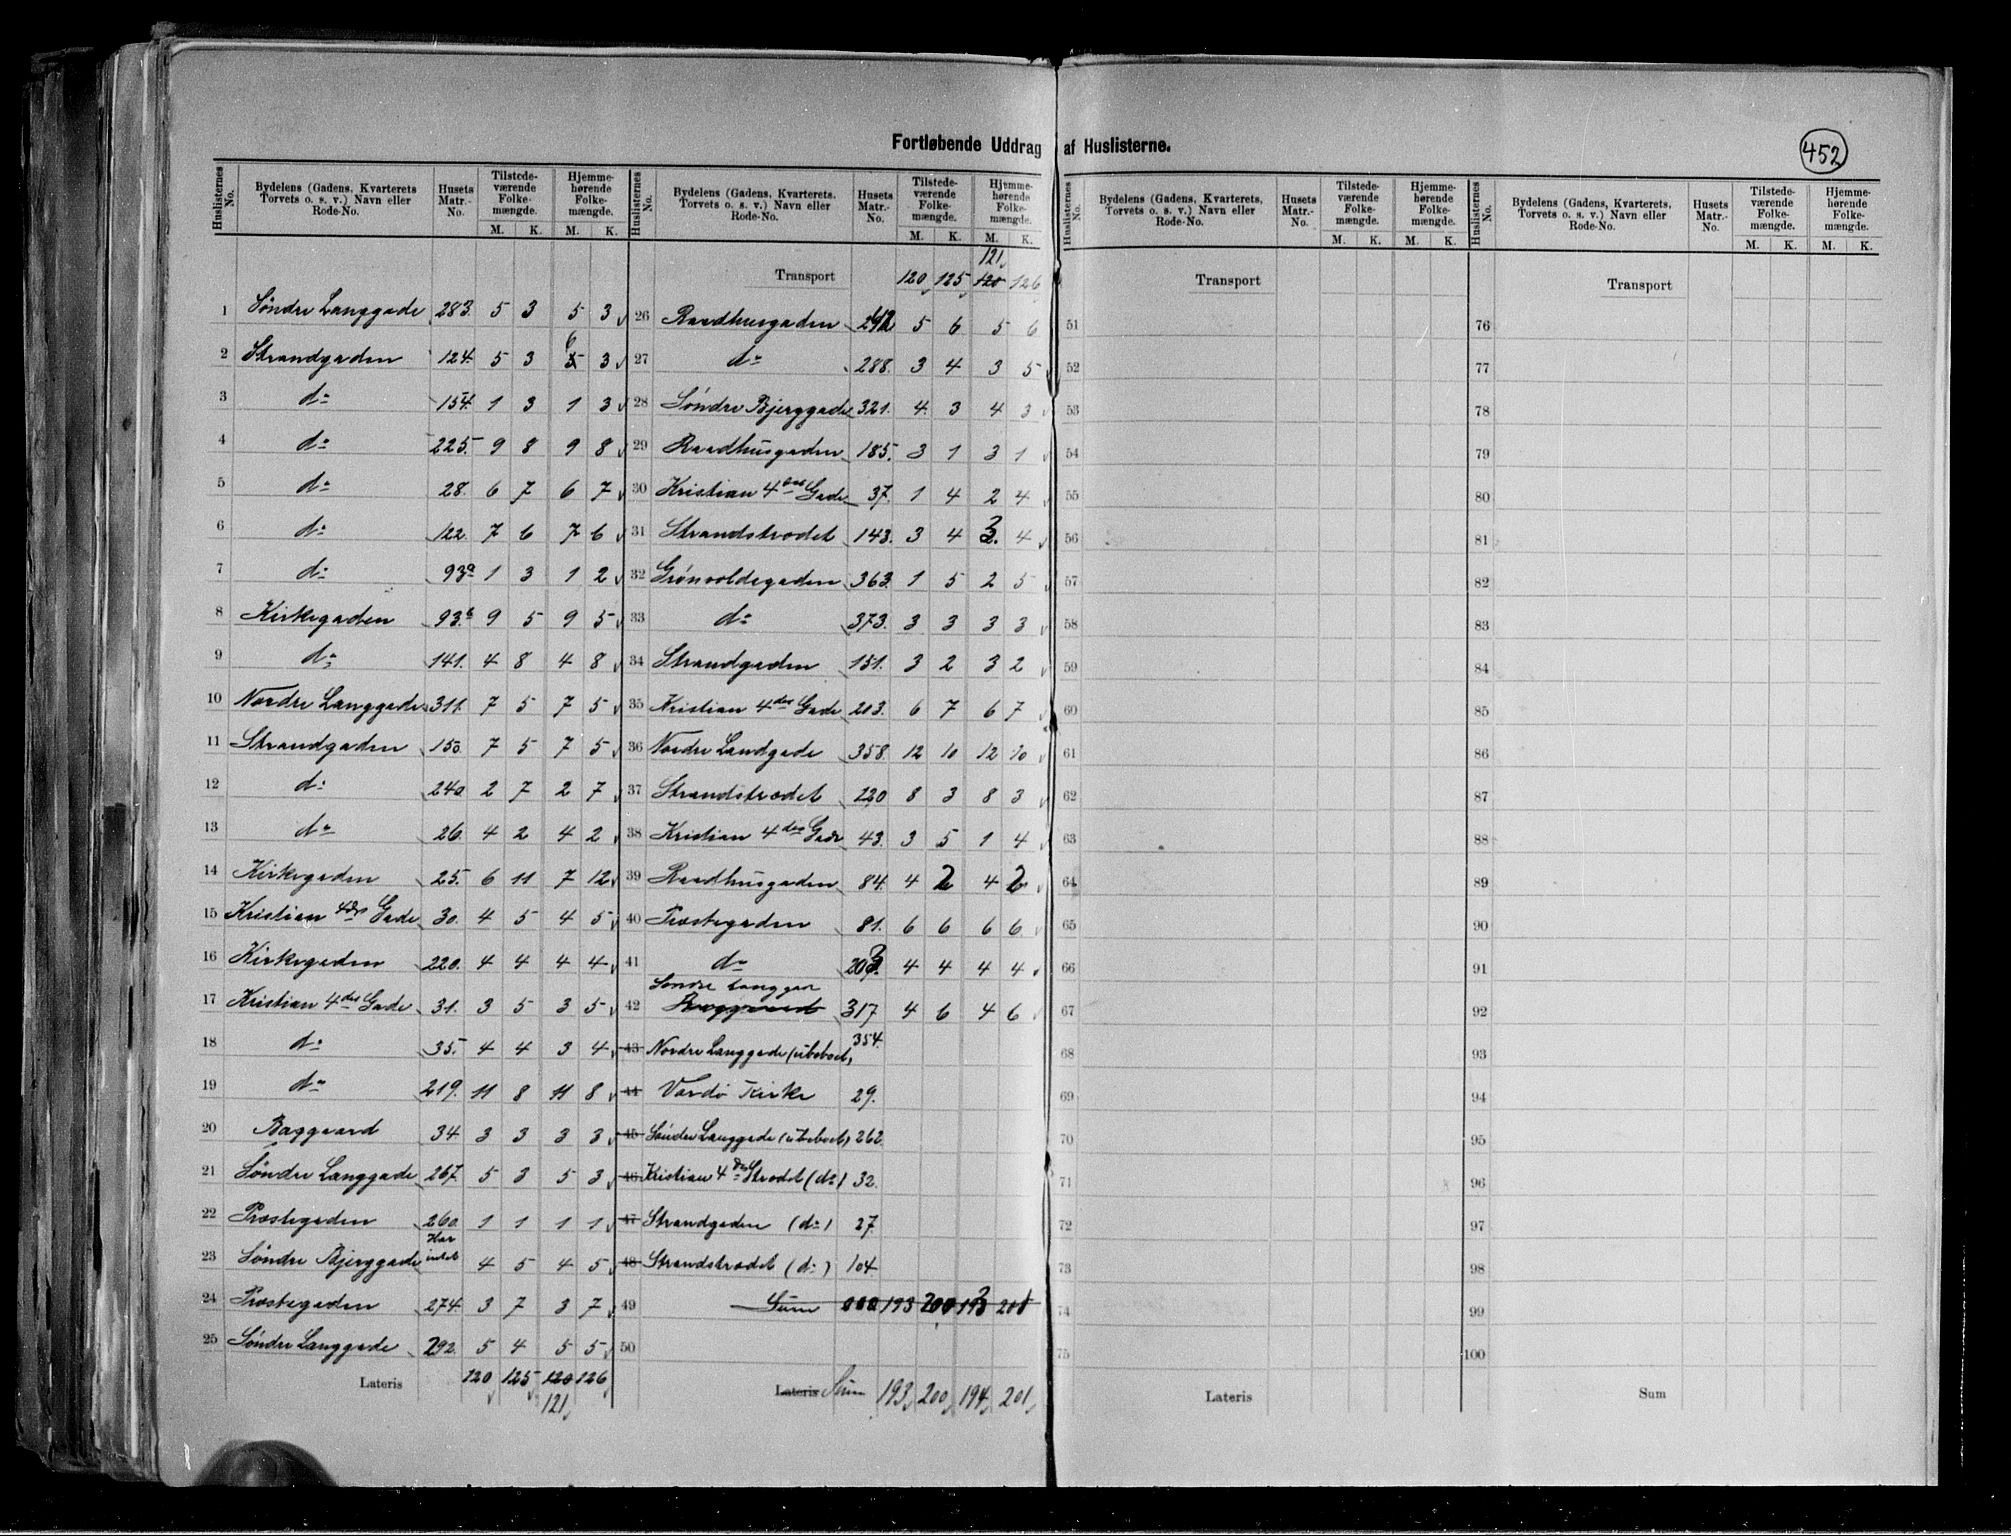 Fortløbende Uddrag af Huslisterne.
452
Huslisternes No. | Bydelens (Gadens, Kvarterets Torvets o. s. v.) Navn eller Rode-No. | Husets Matr.-No. | Tilstede-værende Folke-mængde. M. K. | Hjemme-hørende Folke-mængde. M. K.
1 Søndre Langgade 283. 5 3 5 3
2 Strandgaden 124. 5 3 6 3
3 do 154. 1 3 1 3
4 do 225. 9 8 9 8
5 do 28. 6 7 6 7
6 do 122. 7 6 7 6
7 do 93a 1 3 1 2
8 Kirkegaden 93b 9 5 9 5
9 do 141. 4 8 4 8
10 Nordre Langgade 311. 7 5 7 5
11 Strandgaden 150. 7 5 7 5
12 do 240 2 7 2 7
13 do 26. 4 2 4 2
14 Kirkegaden 25. 6 11 7 12
15 Kristian 4des Gade 30. 4 5 4 5
16 Kirkegaden 220. 4 4 4 4
17 Kristian 4des Gade 31. 3 5 3 5
18 do 35. 4 4 3 4
19 do 219. 11 8 11 8
20 Baggaard 34 3 3 3 3
21 Søndre Langgade 267. 5 3 5 3
22 Præstegaden 260. 1 1 1 1
23 Søndre Bjerggade Har intet 4 5 4 5
24 Præstegaden 274. 3 7 3 7
25 Søndre Langgade 292. 5 4 5 5
Lateris 120 125 120 126
121
Huslisternes No. | Bydelens (Gadens, Kvarterets, Torvets o. s. v.) Navn eller Rode-No. | Husets Matr.-No. | Tilstede-værende Folke-mængde. M. K. | Hjemme-hørende Folke-mængde. M. K.
121
Transport 120 125 120 126
26 Raadhusgaden 5 6 5 6
27 do 288. 3 4 3 5
28 Søndre Bjerggade 321. 4 3 4 3
29 Raadhusgaden 185. 3 1 3 1
30 Kristian 4des Gade 37. 1 4 2 4
31 Strandstrædet 143. 3 4 3 4
32 Grønvoldsgaden 363. 1 5 2 5
33 do 373. 3 3 3 3
34 Strandgaden 151. 3 2 3 2
35 Kristian 4des Gade 203. 6 7 6 7
36 Nordre Landgade 358. 12 10 12 10
37 Strandstrædet 120 8 3 8 3
38 Kristian 4des Gade 43. 3 5 1 4
39 Raadhusgaden 84. 4 2 4 2
40 Præstegaden 81. 6 6 6 6
41 do 203. 4 4 4 4
Søndre Langgae
42 Baggaard 317 4 6 4 6
43 Nordre Langgade (ubeboet) 354.
44 Vardø Kirke 29.
45 Søndre Langgade (ubeboet) 262
46 Kristian 4des Strædet (do) 32.
47 Strandgaden (do) 27.
48 Strandstrædet (do) 104.
49 Sum 193 200 193 201
50
Lateris Sum 193 200 194 201
Huslisternes No. | Bydelens (Gadens, Kvarterets, Torvets o. s. v.) Navn eller Rode-No. | Husets Matr.-No. | Tilstede-værende Folke-mængde. M. K. | Hjemme-hørende Folke-mængde. M. K.
Transport
51
52
53
54
55
56
57
58
59
60
61
62
63
64
65
66
67
68
69
70
71
72
73
74
75
Lateris
Huslisternes No. | Bydelens (Gadens, Kvarterets, Torvets o. s. v.) Navn eller Rode-No. | Husets Matr.-No. | Tilstede-værende Folke-mængde. M. K. | Hjemme-hørende Folke-mængde. M. K.
Transport
76
77
78
79
80
81
82
83
84
85
86
87
88
89
90
91
92
93
94
95
96
97
98
99
100
Sum